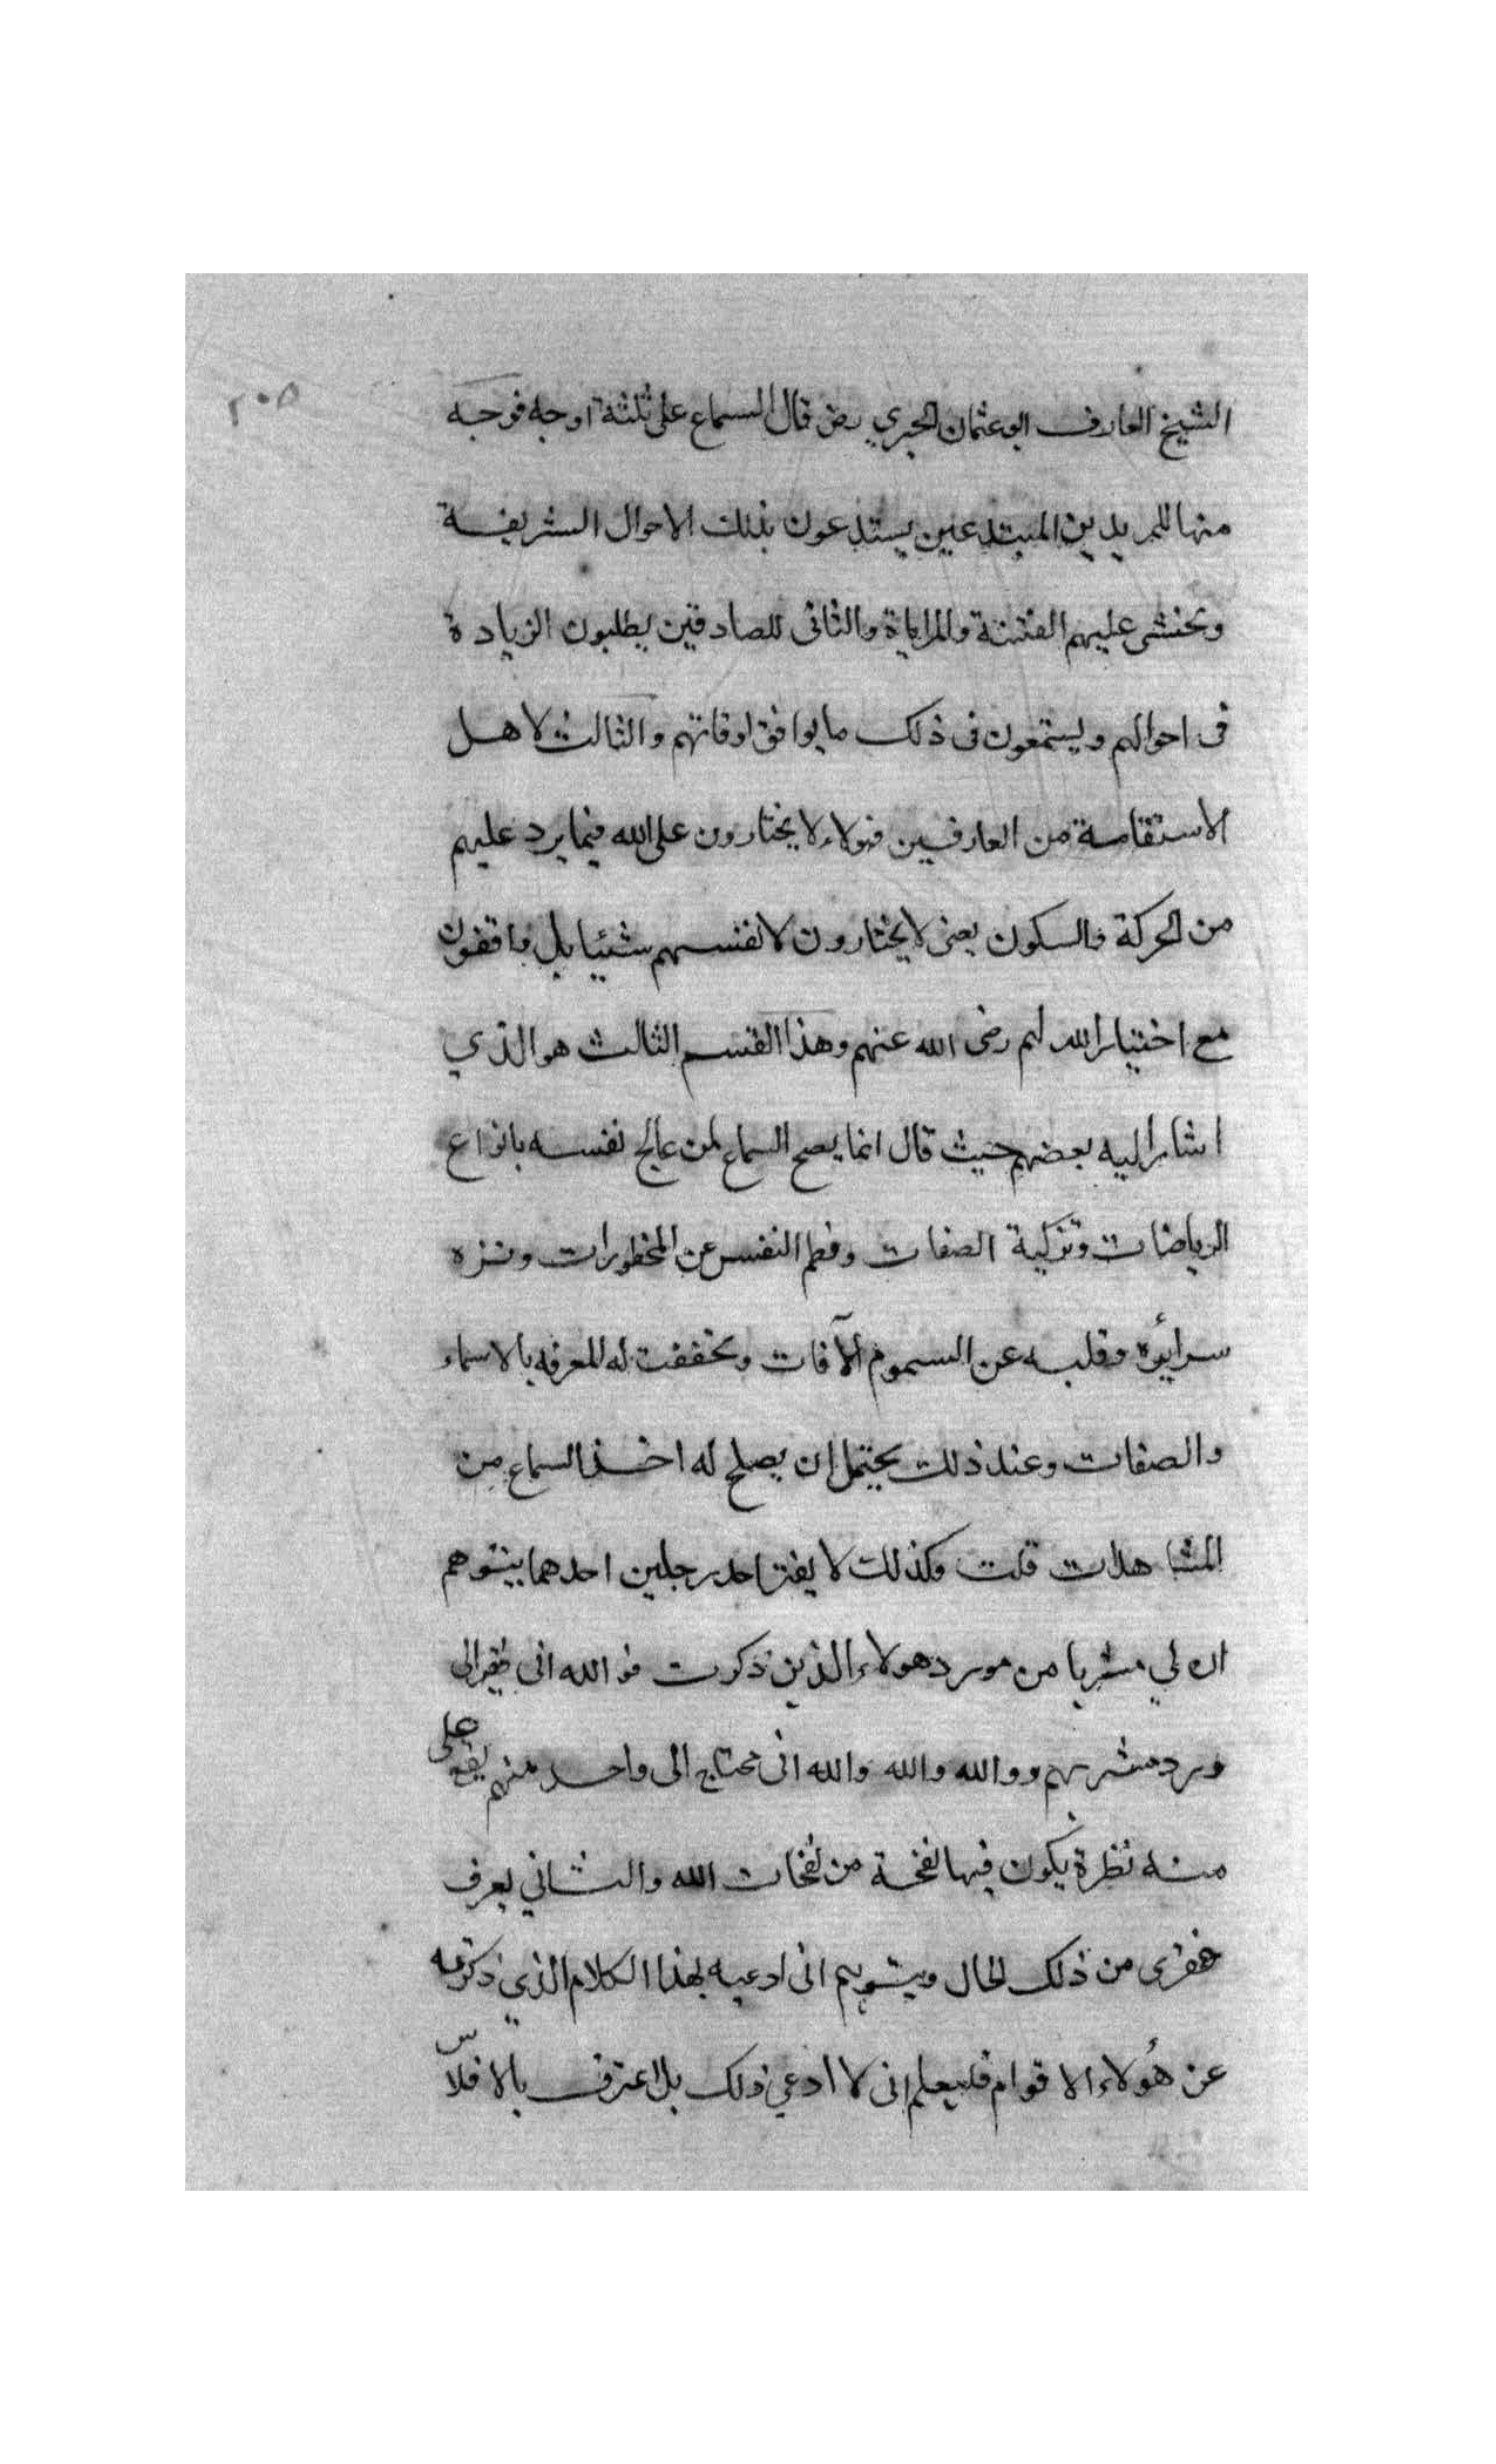 ٢٠٥
الشيخ العارف ابو عثمان الحيري رض قال السماع على ثلثة اوجه فوجه
منها للمريدين المبتدعين يستدعون بذلك الاحوال الشريفة
وتخشى عليهم الفتنة والمراياة والثانى للصادقين يطلبون الزيادة
فى احوالهم ويستمعون فى ذلك ما يوافق اوقاتهم والثالث لاهل
الاستقامة من العارفين فهولاء لا يختارون على الله فيما يرد عليهم
من الحركة والسكون يعنى لا يختارون لانفسهم شيئا بل واقفون
مع اختيار الله لهم رضى الله عنهم وهذا القسم الثالث هو الذي
اشار اليه بعضهم حيث قال انما يصح السماع لمن عالج نفسه بانواع
الرياضات وتزكية الصفات وفطم النفس عن المحظورات ونزه
سرائره وقلبه عن السموم الآفات وتحققت له المعرفه بالاسماء
والصفات وعند ذلك يحتمل ان يصلح له اخذ السماع من
المشاهدات قلت وكذلك لا يغتر احد رجلين احدهما يتوهم
ان لي مشربا من مورد هولاء الذين ذكرت فو الله انى فقير الى
ورد مشربهم ووالله والله والله انى محتاج الى واحد منهم يقع على
منه نظرة يكون فيها نفحة من نفحات الله والثاني يعرف
فقرى من ذلك الحال ويتوهم انى ادعيه بهذا الكلام الذي ذكرته
عن هولاء الاقوام فليعلم انى لا ادعي ذلك بل اعترف بالافلاس